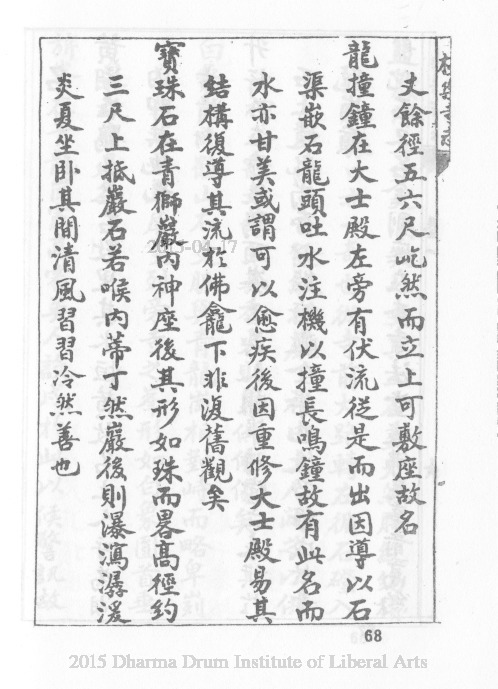 丈餘徑五六尺屹然而立上可敷座故名
龍撞鐘在大士殿左旁有伏流從是而出因導以石
渠嵌石龍頭吐水注機以撞長鳴鐘故有此名而
水亦甘美或謂可以愈疾後因重修大士殿易其
結構復導其流於佛龕下非復舊觀矣
寶珠石在青獅巖內神座後其形如珠而畧高徑約
三尺上抵巖石若喉內蒂丁然巖後則瀑瀉潺湲
炎夏坐卧其間清風習習冷然善也
68
2015 Dharma Drum Institute of Liberal Arts